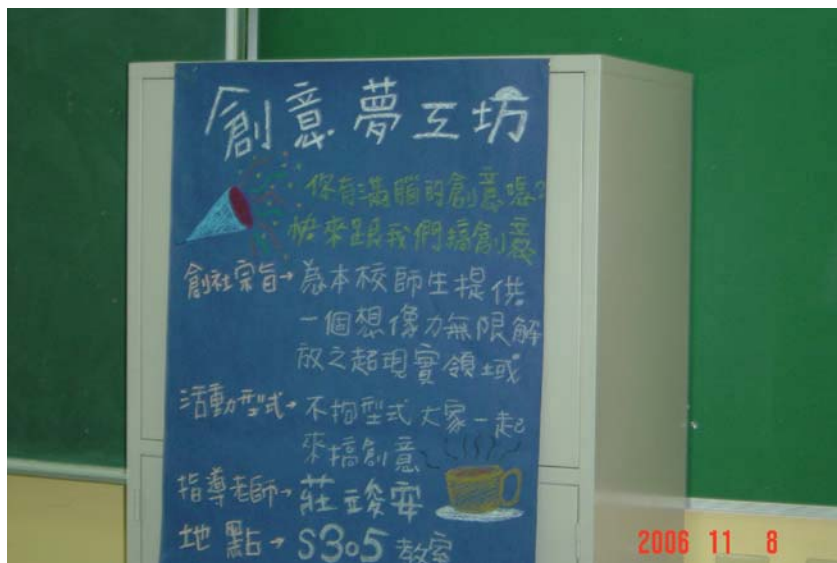 創意夢工坊
你有滿腦的創意嗎?
快來跟我們搞創意
創社宗旨→為本校師生提供
一個想像力無限解
放之超現實領域
活動型式→不拘型式大家一起
來搞創意
指導老師→莊竣安
地點→S305教室
2006 11 8